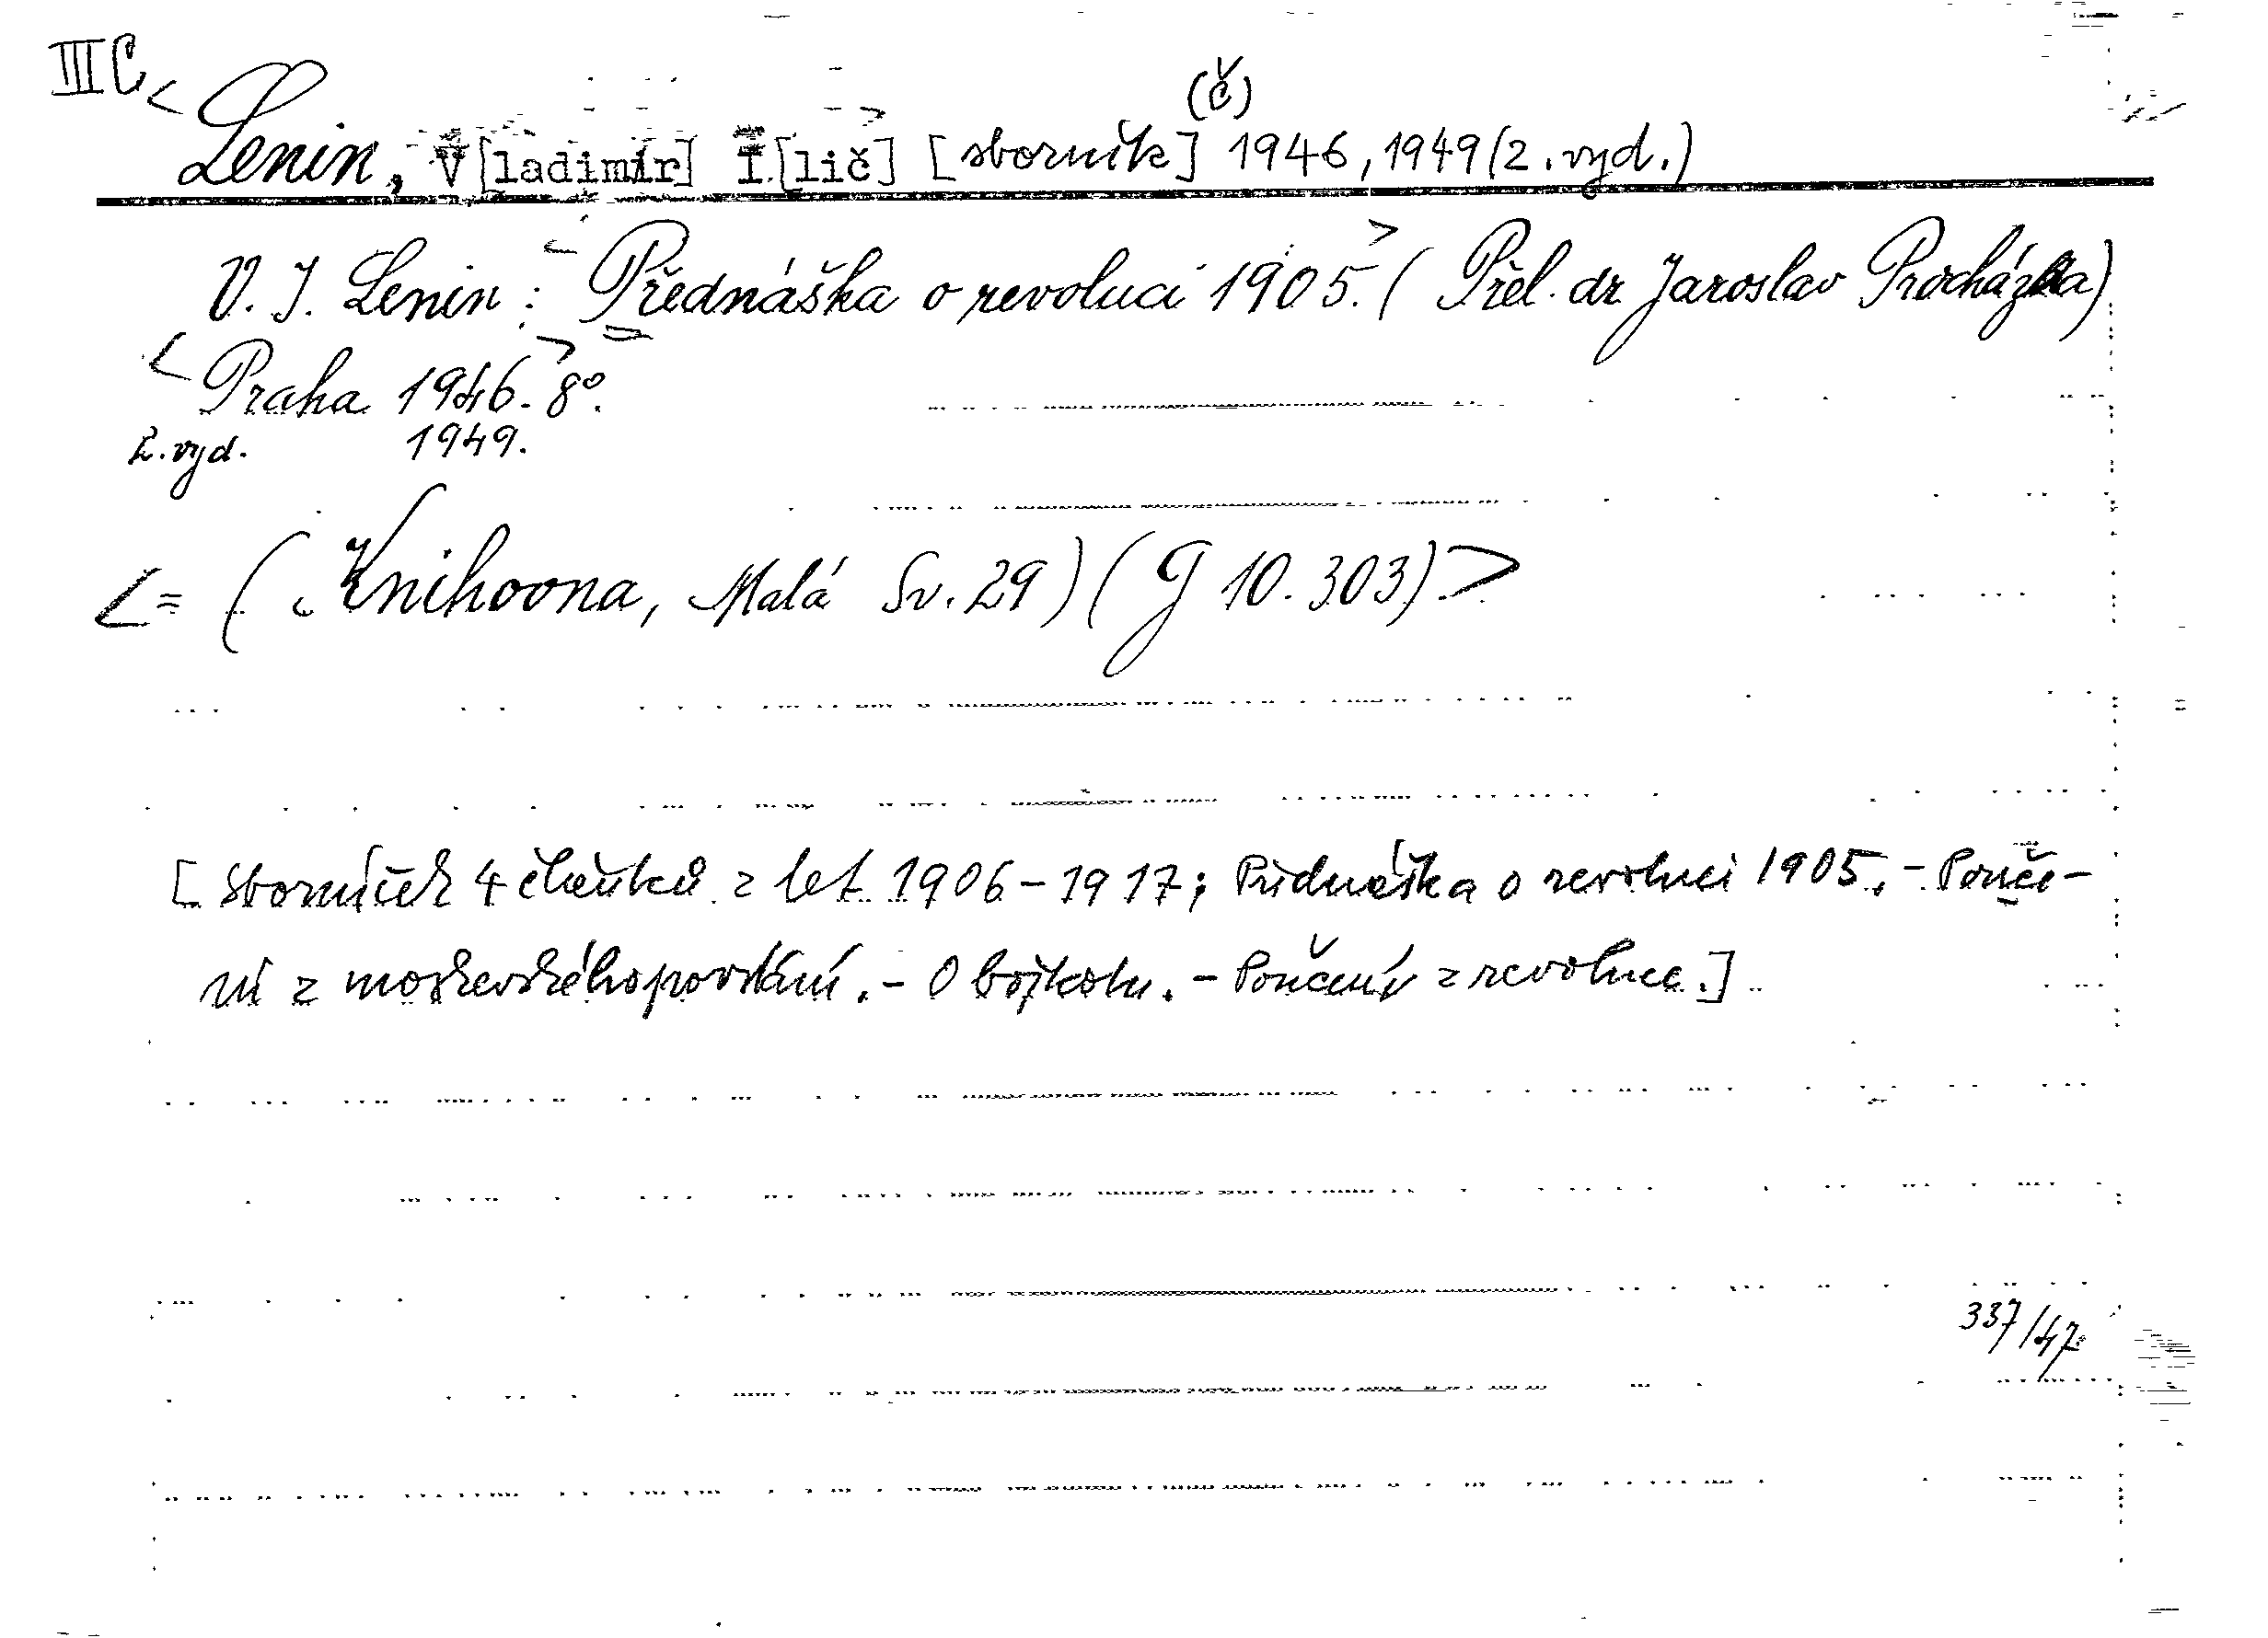 III C
(č)
< Lenin, V[ladimir] I[lič] [sborník] 1946, 1949 (2. vyd.)
V. I. Lenin: < Přednáška o revoluci 1905. > (Přel. dr Jaroslav Procházka)
< Praha 1946. > 8°.
2. vyd. 1949.
< = (Knihovna, Malá Sv. 29) (G 10.303) >
[Sborníček 4 článků z let 1906-1917; Přednáška o revoluci 1905. - Pouče-
ní z moskevského povstání. - O bojkotu. - Poučení z revoluce.]
337/47